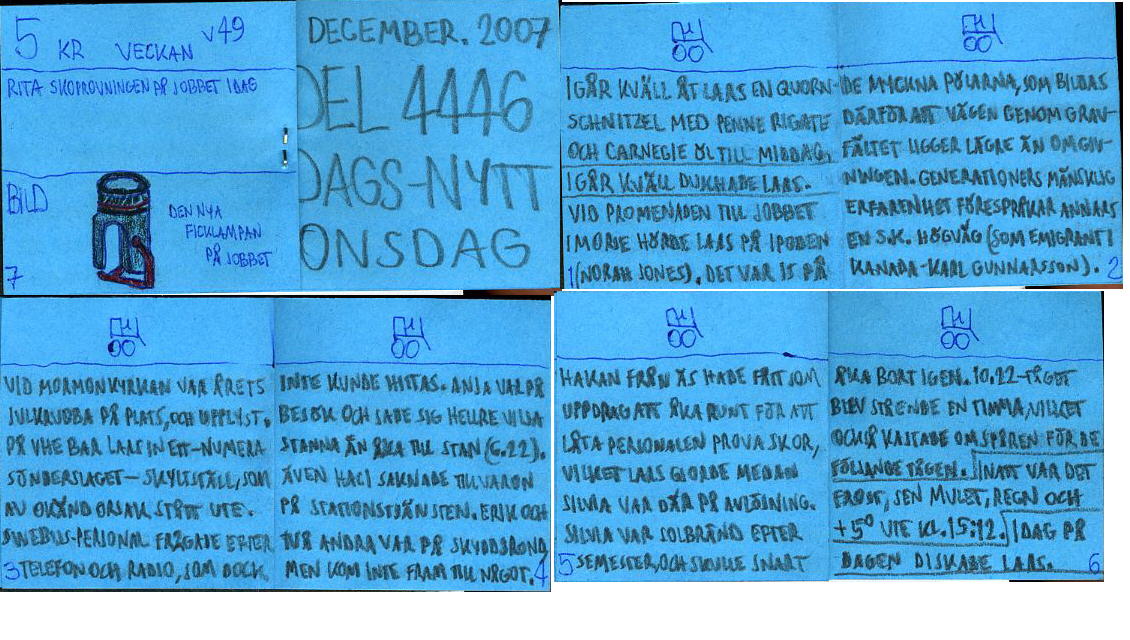 5 KR VECKAN V49
RITA SKOPROVNINGEN PÅ JOBBET IDAG
BILD
DEN NYA
FICKLAMPAN
PÅ JOBBET
7
DECEMBER. 2007
DEL 4446
DAGS-NYTT
ONSDAG
IGÅR KVÄLL ÅT LARS EN QUORN-
SCHNITZEL MED PENNE RIGATE
OCH CARNEGIE ÖL TILL MIDDAG.
IGÅR KVÄLL DUSCHADE LARS.
VID PROMENADEN TILL JOBBET
I MORSE HÖRDE LARS PÅ IPODEN
(NORAH JONES). DET VAR IS PÅ
1
DE MYCKNA PÖLARNA, SOM BILDAS
DÄRFÖR ATT VÄGEN GENOM GRAV-
FÄLTET LIGGER LÄGRE ÄN OMGIV-
NINGEN. GENERATIONERS MÄNSKLIG
ERFARENHET FÖRESPRÅKAR ANNARS
EN S.K. HÖGVÄG (SOM EMIGRANT I
KANADA-KARL GUNNARSSON).
2
VID MORMONKYRKAN VAR ÅRETS
JULKRUBBA PÅ PLATS, OCH UPPLYST.
PÅ VHE BAR LARS IN ETT-NUMERA
SÖNDERSLAGET-SKYLTSTÄLL, SOM
AV OKÄND ORSAK STÅTT UTE.
SWEBUS-PERSONAL FRÅGADE EFTER
3 TELEFON OCH RADIO, SOM DOCK
INTE KUNDE HITTAS. ANJA VAR PÅ
BESÖK OCH SADE SIG HELLRE VILJA
STANNA ÄN ÅKA TILL STAN (6.22).
ÄVEN HACI SAKNADE TILLVARON
PÅ STATIONSTJÄNSTEN. ERIK OCH
TVÅ ANDRA VAR PÅ SKYDDSROND,
MEN KOM INTE FRAM TILL NÅGOT.
4
HÅKAN FRÅN ÄS HADE FÅTT SOM
UPPDRAG ATT ÅKA RUNT FÖR ATT
LÅTA PERSONALEN PROVA SKOR,
VILKET LARS GJORDE MEDAN
SILVIA VAR DÄR PÅ AVLÖSNING.
SILVIA VAR SOLBRÄND EFTER
5 SEMESTER, OCH SKULLE SNART
ÅKA BORT IGEN. 10.22-TÅGET
BLEV STÅENDE EN TIMMA, VILKET
OCKSÅ KASTADE OM SPÅREN FÖR DE
FÖLJANDE TÅGEN. INATT VAR DET
FROST, SEN MULET, REGN OCH
+5° UTE KL. 15:12. IDAG PÅ
DAGEN DISKADE LARS.
6